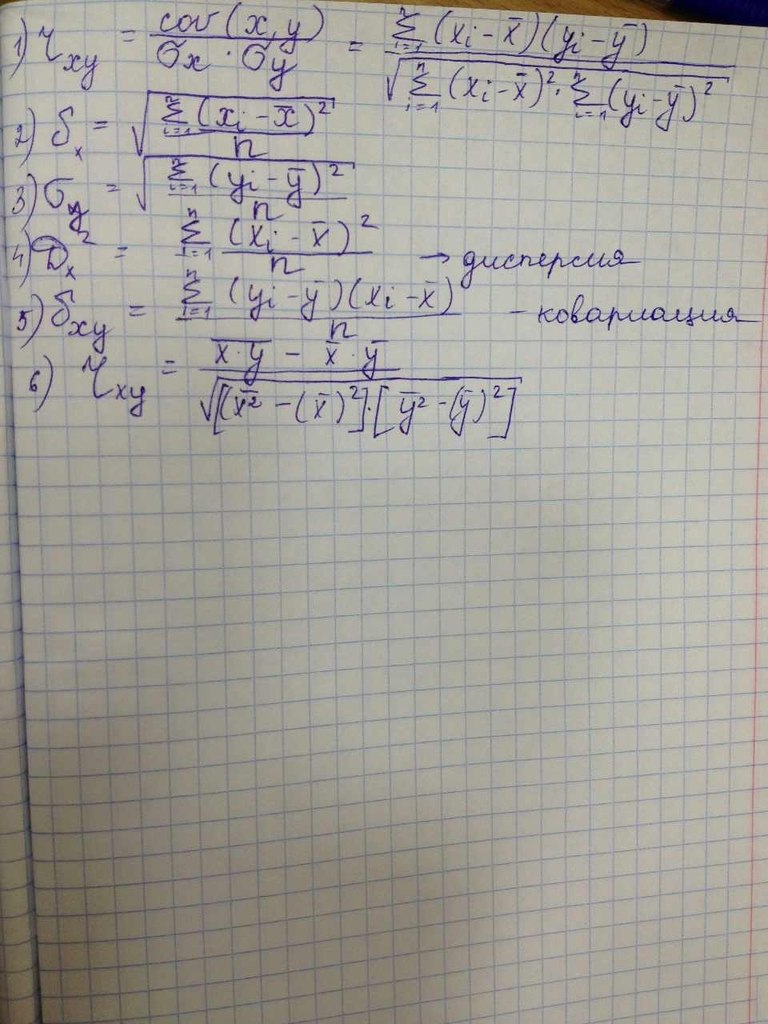 1) r_xy = cov(x,y) / (σx · σy) = Σ_{i=1}^{n} (xi − x̄)(yi − ȳ) / √(Σ_{i=1}^{n} (xi − x̄)² · Σ_{i=1}^{n} (yi − ȳ)²)
2) δ_x = √(Σ_{i=1}^{n} (xi − x̄)² / n)
3) σ_y = √(Σ_{i=1}^{n} (yi − ȳ)² / n)
4) D_x² = Σ_{i=1}^{n} (xi − x̄)² / n → дисперсия
5) δ_xy = Σ_{i=1}^{n} (yi − ȳ)(xi − x̄) / n - ковариация
6) r_xy = (x·y̅ − x̄ · ȳ) / √([(x̄² − (x̄)²] · [ȳ² − (ȳ)²])